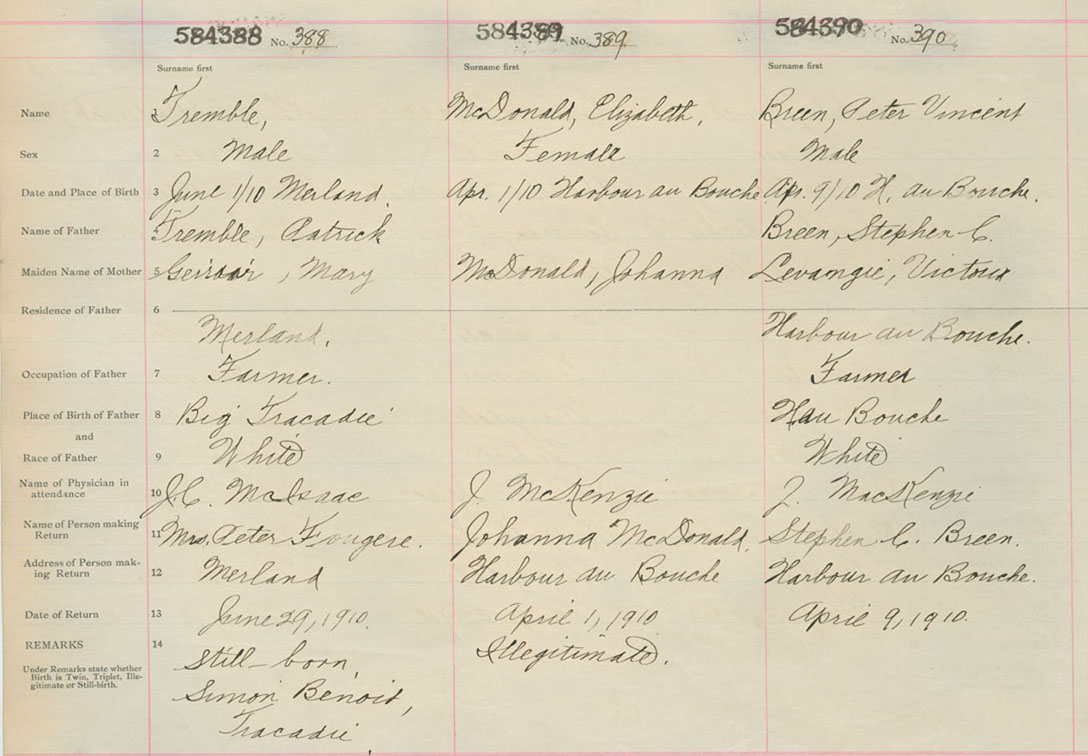 584388 No. 388 584389 No. 389 584390 No. 390
Surname first Surname first Surname first
Name 1 Tremble, McDonald, Elizabeth, Breen, Peter Vincent
Sex 2 Male Female Male
Date and Place of Birth 3 June 1/10 Merland. Apr. 1/10 Harbour au Bouche Apr. 9/10 H. au Bouche.
Name of Father 4 Tremble, Patrick Breen, Stephen C.
Maiden Name of Mother 5 , Mary McDonald, Johanna Levangie,
Residence of Father 6
Merland. Harbour au Bouche.
Occupation of Father 7 Farmer. Farmer
Place of Birth of Father 8 Big Tracadie Hau Bouche
and
Race of Father 9 White White
Name of Physician in
attendance 10 J.C. McIsaac J. McKenzie J. MacKenzie
Name of Person making
Return 11 Mrs. Peter Fougere. Johanna McDonald. Stephen C. Breen.
Address of Person mak-
ing Return 12 Merland Harbour au Bouche Harbour au Bouche.
Date of Return 13 June 29, 1910. April 1, 1910 April 9, 1910.
REMARKS 14 Still-born, Illegitimate.
Under Remarks state whether
Birth is Twin, Triplet, Ille-
gitimate or Still-birth.
Simon Benoit,
Tracadie